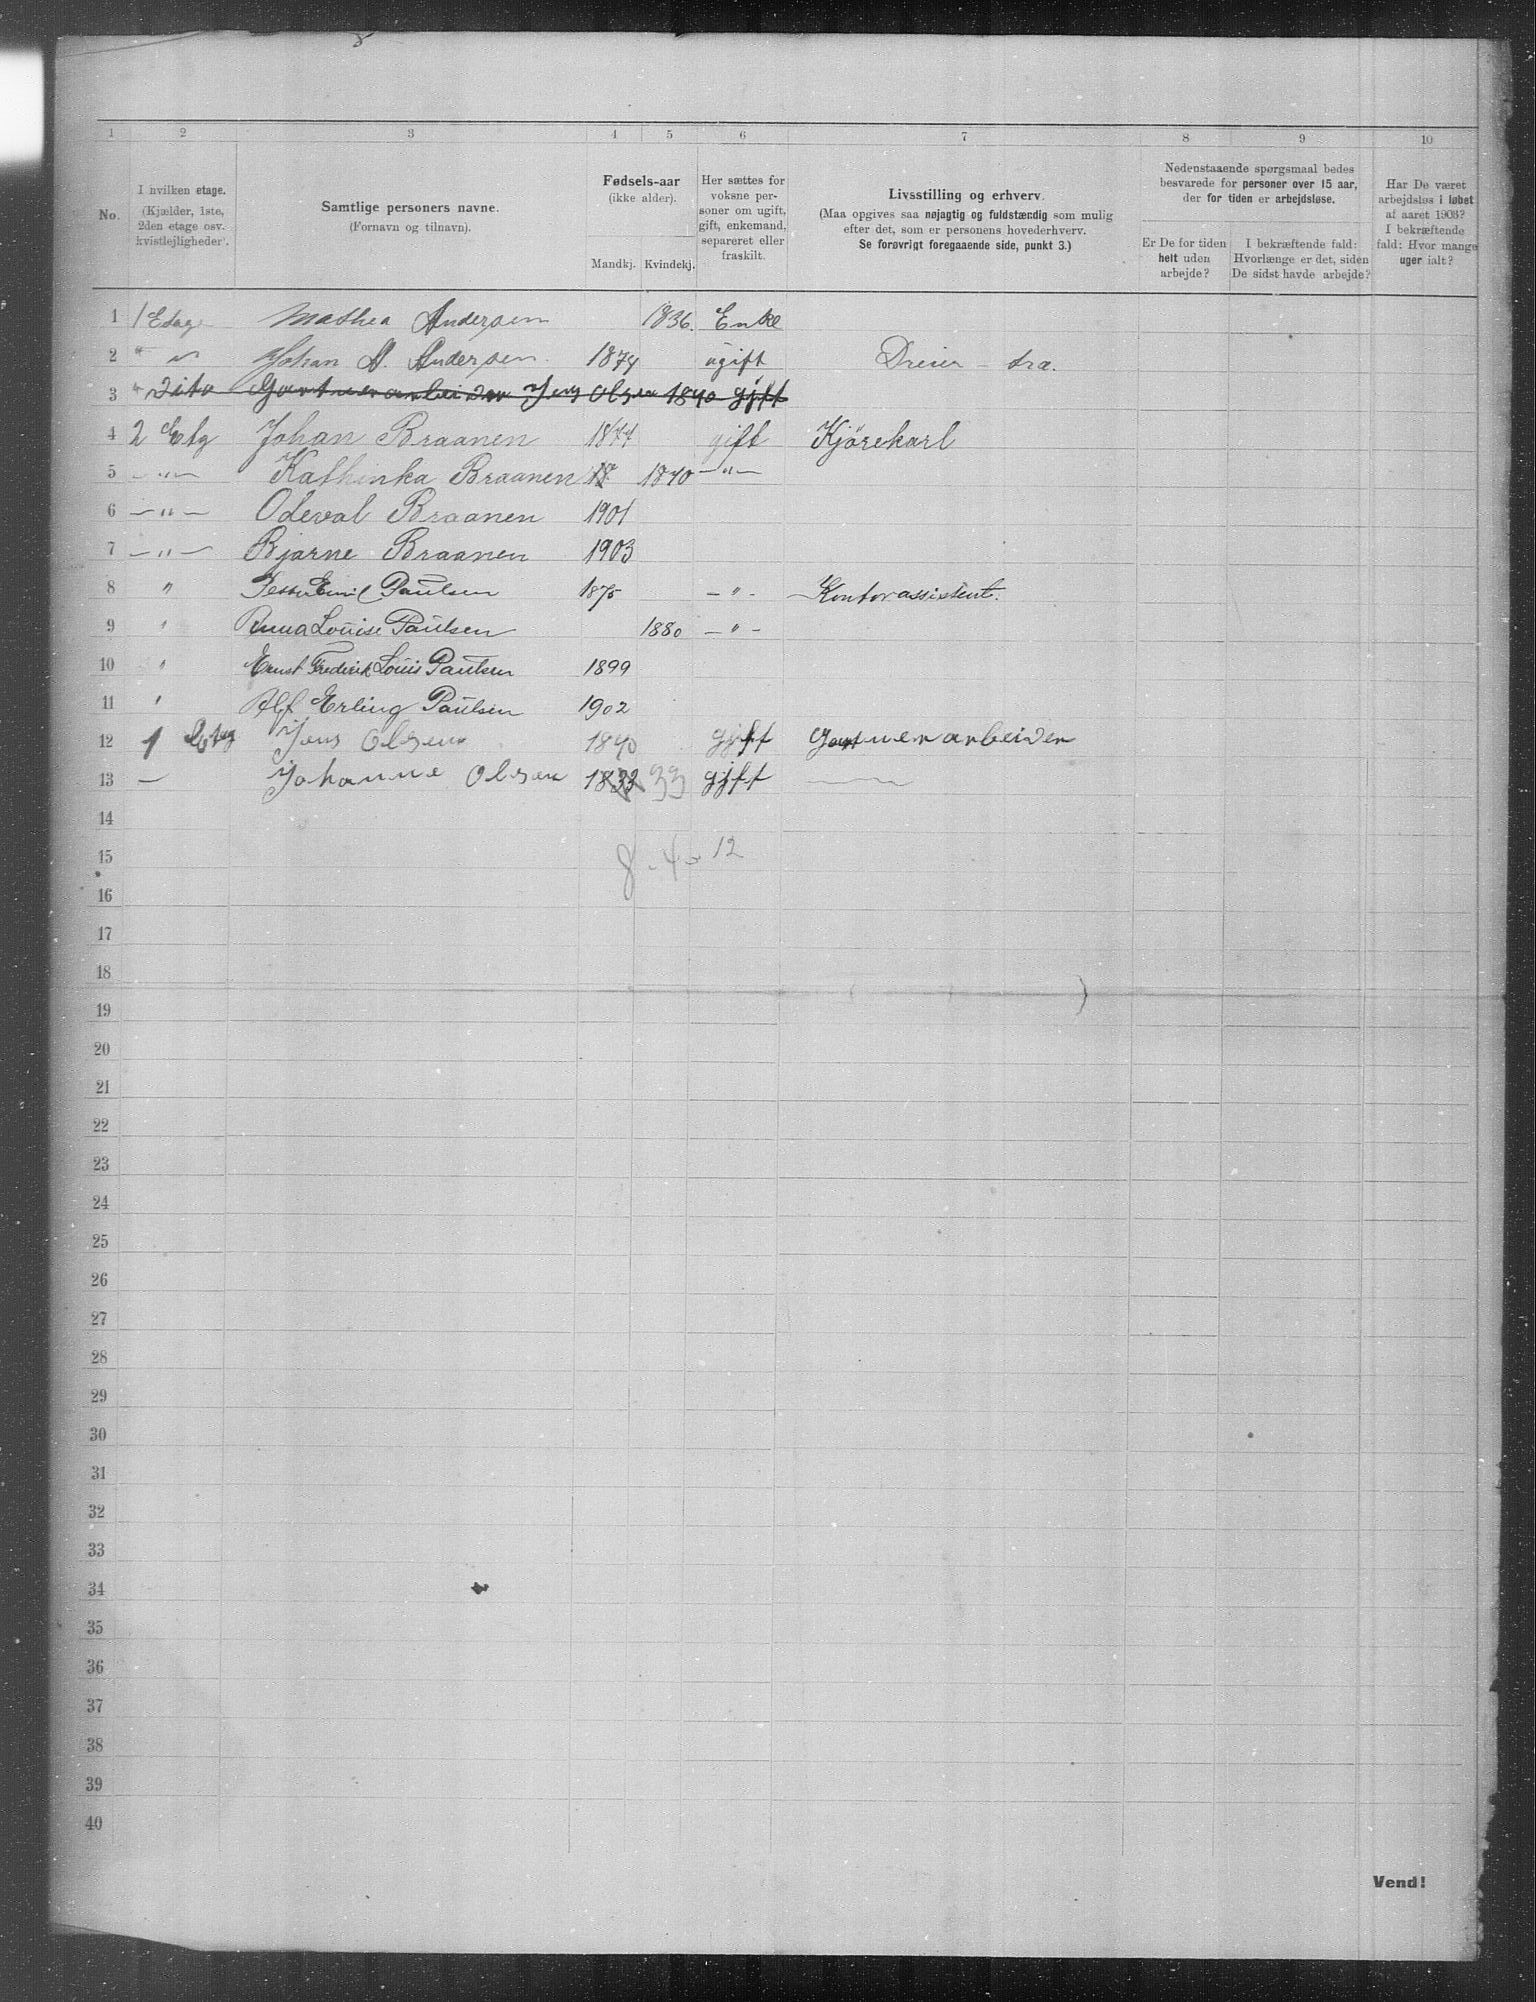 1 2 3 4 5 6 7 8 9 10
No.
I hvilken etage.
(Kjælder, 1ste,
2den etage osv.
kvistlejligheder).
Samtlige personers navne.
(Fornavn og tilnavn).
Fødsels-aar
(ikke alder).
Mandkj. Kvindekj.
Her sættes for
voksne per-
soner om ugift,
gift, enkemand,
separeret eller
fraskilt.
Livsstilling og erhverv.
(Maa opgives saa nøjagtig og fuldstændig som mulig
efter det, som er personens hovederhverv.
Se forøvrigt foregaaende side, punkt 3.)
Nedenstaaende spørgsmaal bedes
besvarede for personer over 15 aar,
der for tiden er arbejdsløse.
Er De for tiden
helt uden
arbejde?
I bekræftende fald:
Hvorlænge er det, siden
De sidst havde arbejde?
Har De været
arbejdsløs i løbet
af aaret 1903?
I bekræftende
fald: Hvor mange
uger ialt?
1 1 Etage Mathea Andersen 1836. Enke
2 " " Johan A. Andersen. 1874 ugift Dreier - træ.
3 " Dito Gartnerarbeider Jens Olsen 1840 gift
4 2 Etg Johan Braanen 1877 gift Kjørekarl
5 -"- Kathinka Braanen 18 1870 -"-
6 -"- Odeval Braanen 1901
7 -"- Bjarne Braanen 1903
8 " Emil Paulsen 1875 -"- Kontorassistent.
9 " Anna Louise Paulsen 1880 -"-
10 " Ernst Frederik Louis Paulsen 1899
11 " Alf Erling Paulsen 1902
12 1 Etag Jens Olsen 1840 gift Gartnerarbeider
13 — Johanne Olsen 1833 33 gift —
14
15 8 - 4 - 12
16
17
18
19
20
21
22
23
24
25
26
27
28
29
30
31
32
33
34
35
36
37
38
39
40
Vend!